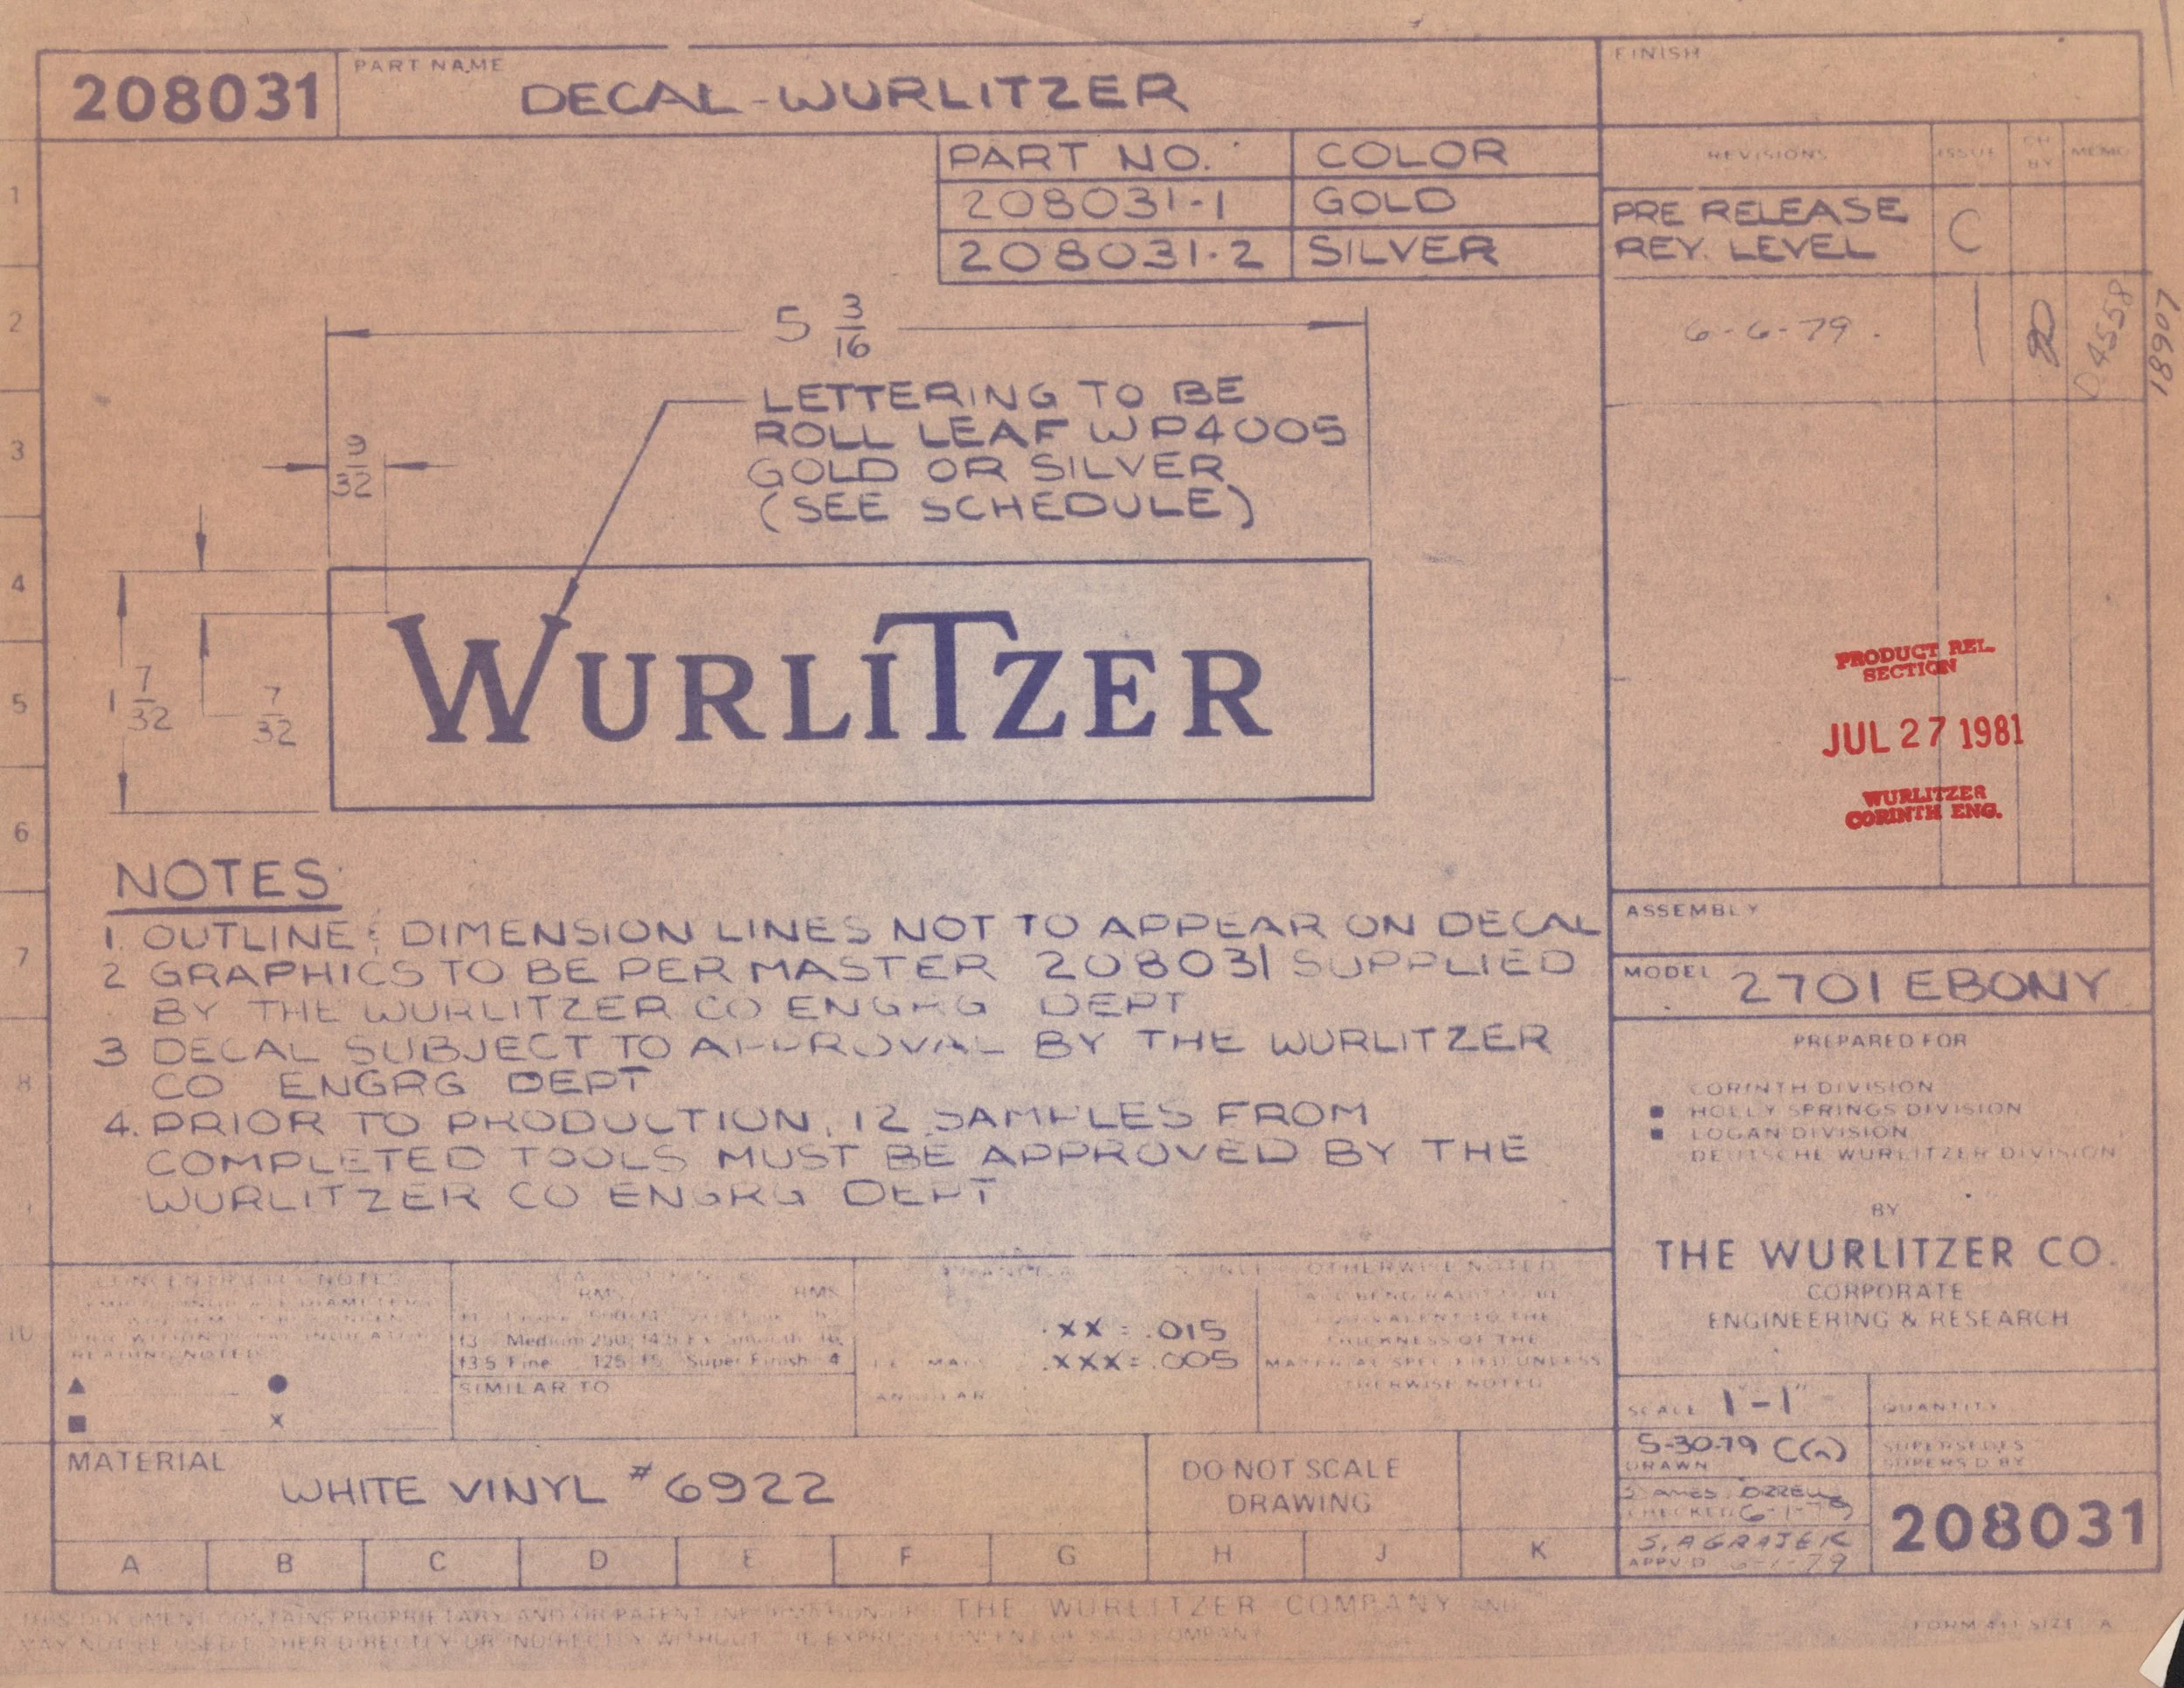 208031
PART NAME
DECAL-WURLITZER
FINISH
PART NO. COLOR
208031-1 GOLD
208031-2 SILVER
REVISIONS ISSUE CH BY MEMO
PRE RELEASE
REV. LEVEL C
6-6-79. 1
18907
5 3/16
LETTERING TO BE
ROLL LEAF WP4005
GOLD OR SILVER
(SEE SCHEDULE)
9/32
1 7/32
7/32
WURLITZER
PRODUCT REL.
SECTION
JUL 27 1981
WURLITZER
CORINTH ENG.
NOTES
1. OUTLINE & DIMENSION LINES NOT TO APPEAR ON DECAL
2 GRAPHICS TO BE PER MASTER 208031 SUPPLIED
BY THE WURLITZER CO ENGRG DEPT
3 DECAL SUBJECT TO APPROVAL BY THE WURLITZER
CO ENGRG DEPT
4. PRIOR TO PRODUCTION, 12 SAMPLES FROM
COMPLETED TOOLS MUST BE APPROVED BY THE
WURLITZER CO ENGRG DEPT
ASSEMBLY
MODEL 2701 EBONY
PREPARED FOR
CORINTH DIVISION
HOLLY SPRINGS DIVISION
LOGAN DIVISION
DEUTSCHE WURLITZER DIVISION
BY
THE WURLITZER CO.
CORPORATE
ENGINEERING & RESEARCH
OTHERWISE NOTED
RMS RMS
Medium
Fine 125 Super Finish 4
SIMILAR TO
.XX = .015
.XXX = .005
THICKNESS OF THE
MATERIAL SPECIFIED UNLESS
OTHERWISE NOTED
X
SCALE 1"-1"
QUANTITY
5-30-79
DRAWN
SUPERSEDES
SUPERS'D BY
CHECKED 6-1-79
S. A GRAJEK
APPV'D 6-1-79
208031
MATERIAL
WHITE VINYL #6922
DO NOT SCALE
DRAWING
A B C D E F G H J K
1
2
3
4
5
6
7
8
10
THIS DOCUMENT CONTAINS PROPRIETARY AND OR PATENT INFORMATION OF THE WURLITZER COMPANY AND
MAY NOT BE USED EITHER DIRECTLY OR INDIRECTLY WITHOUT THE EXPRESS CONSENT OF SAID COMPANY
SIZE A